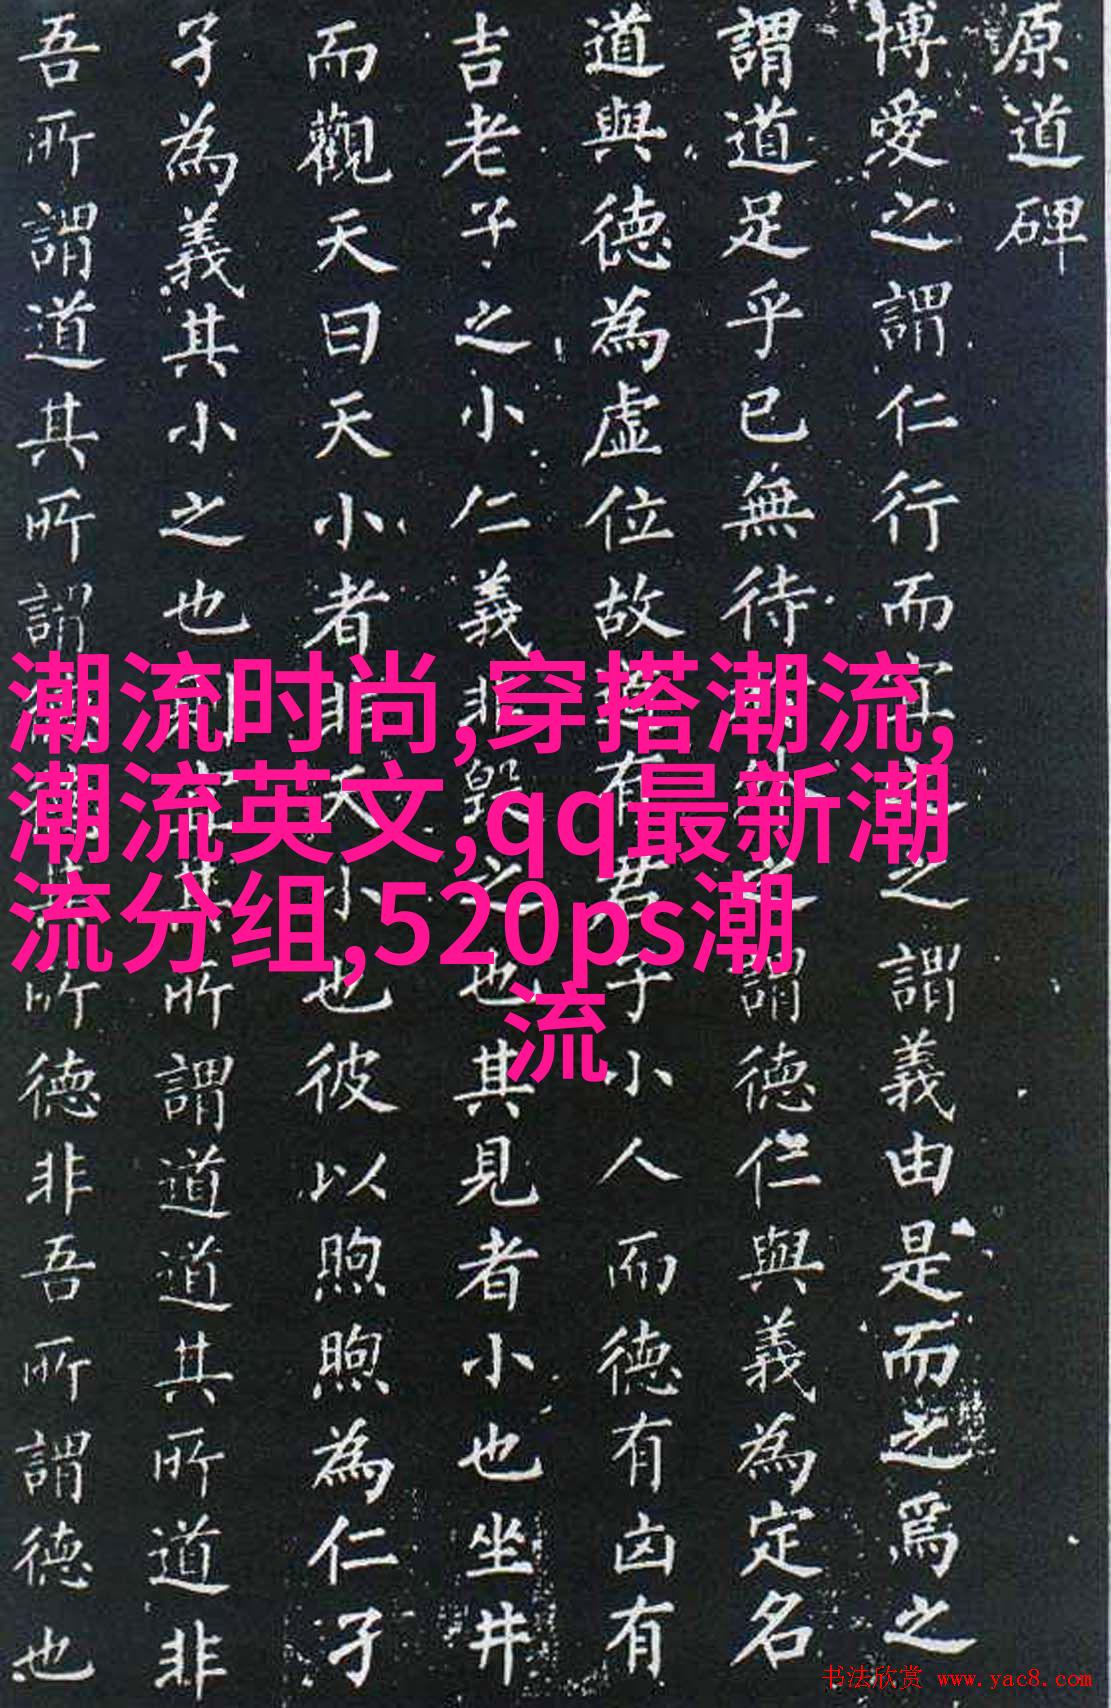 原道碑
博愛之謂仁行而宜之之謂義由是而之焉之
謂道足乎已無待外之謂德仁與義為定名
道與德為虛位故道有君子小人而德有凶有
吉老子之小仁義非毀之也其見者小也坐井
而觀天曰天小者非天小也彼以煦煦為仁孑
孑為義其小之也則宜其所謂道道其所道非
吾所謂道其所謂德其所德非吾所謂德也
潮流时尚,穿搭潮流,
潮流英文,qq最新潮
流分组,520ps潮
流
书法欣赏 www.yac8.com